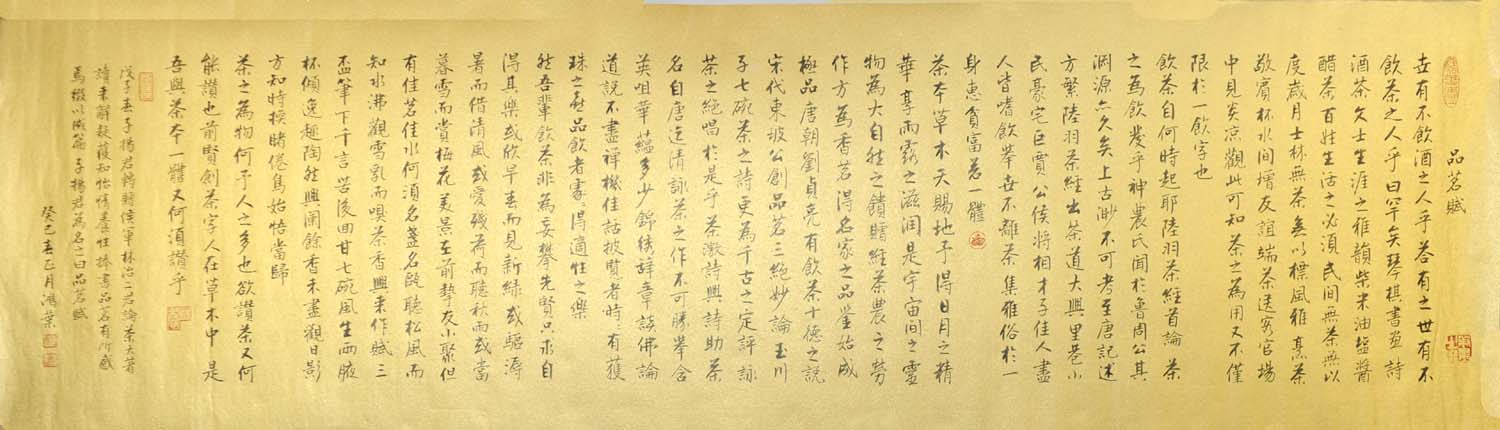 品茗賦
世有不飲酒之人乎答有之世有不
飲茶之人乎曰罕矣琴棋書畫詩
酒茶文士生涯之雅韻柴米油塩醬
醋茶百姓生活之必須民間無茶無以
度歲月士林無茶無以標風雅烹茶
敬賓杯水間增友誼端茶送客官場
中見炎涼觀此可知茶之為用又不僅
限於一飲字也
飲茶自何時起耶陸羽茶經首論茶
之為飲發乎神農氏聞於魯周公其
淵源亦久矣上古渺不可考至唐記述
方繁陸羽茶經出茶道大興里巷小
民豪宅巨賈公侯將相才子佳人盡
人皆嗜飲舉世不離茶集雅俗於一
身惠貧富若一體
茶本草木天賜地予得日月之精
華享雨露之滋潤是宇宙間之靈
物為大自然之饋贈經茶農之勞
作方為香茗得名家之品鉴始成
極品唐朝劉貞亮有飲茶十德之說
宋代東坡公創品茗三絕妙論玉川
子七碗茶之詩更為千古之定評詠
茶之絕唱於是乎茶激詩興詩助茶
名自唐迄清詠茶之作不可勝舉含
英咀華蘊多少錦綉辭章談佛論
道說不盡禪機佳話披覽者時時有獲
珠之喜品飲者家家得適性之樂
然吾輩飲茶非為妄攀先賢只求自
得其樂或欣早春而見新綠或驅溽
暑而借清風或愛殘荷而聽秋雨或當
暮雪而賞梅花美景在前摯友小聚但
有佳茗佳水何須名盞名甌聽松風而
知水沸觀雪乳而嗅茶香興來作賦三
盃筆下千言苦後回甘七碗風生兩腋
杯傾逸趣陶然興闌餘香未盡觀日影
方知時摸睹倦鳥始悟當歸
茶之為物何予人之多也欲讚茶又何
能讚也前賢創茶字人在草木中是
吾與茶本一體又何須讚乎
戊子春子揚君轉贈侯軍林治二君論茶大著
讀來解頤獲知怡情養性捧書品茗有所感
焉撰以成篇子揚君為名之曰品茗賦
癸巳春正月鴻業